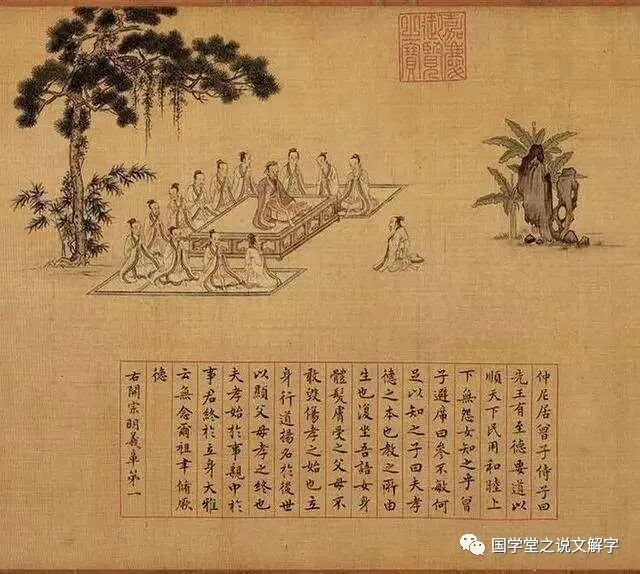 嘉慶
御覽
之寶
仲尼居曾子侍子曰
先王有至德要道以
順天下民用和睦上
下無怨女知之乎曾
子避席曰參不敏何
足以知之子曰夫孝
德之本也教之所由
生也復坐吾語女身
體髮膚受之父母不
敢毀傷孝之始也立
身行道揚名於後世
以顯父母孝之終也
夫孝始於事親中於
事君終於立身大雅
云無念爾祖聿脩厥
德
右開宗明義章第一
国学堂之说文解字